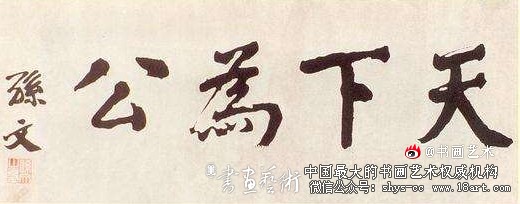 天下為公
孫文
@书画艺术
書画藝術
中国最大的书画艺术权威机构
微信公众号：shys-cc www.18art.com